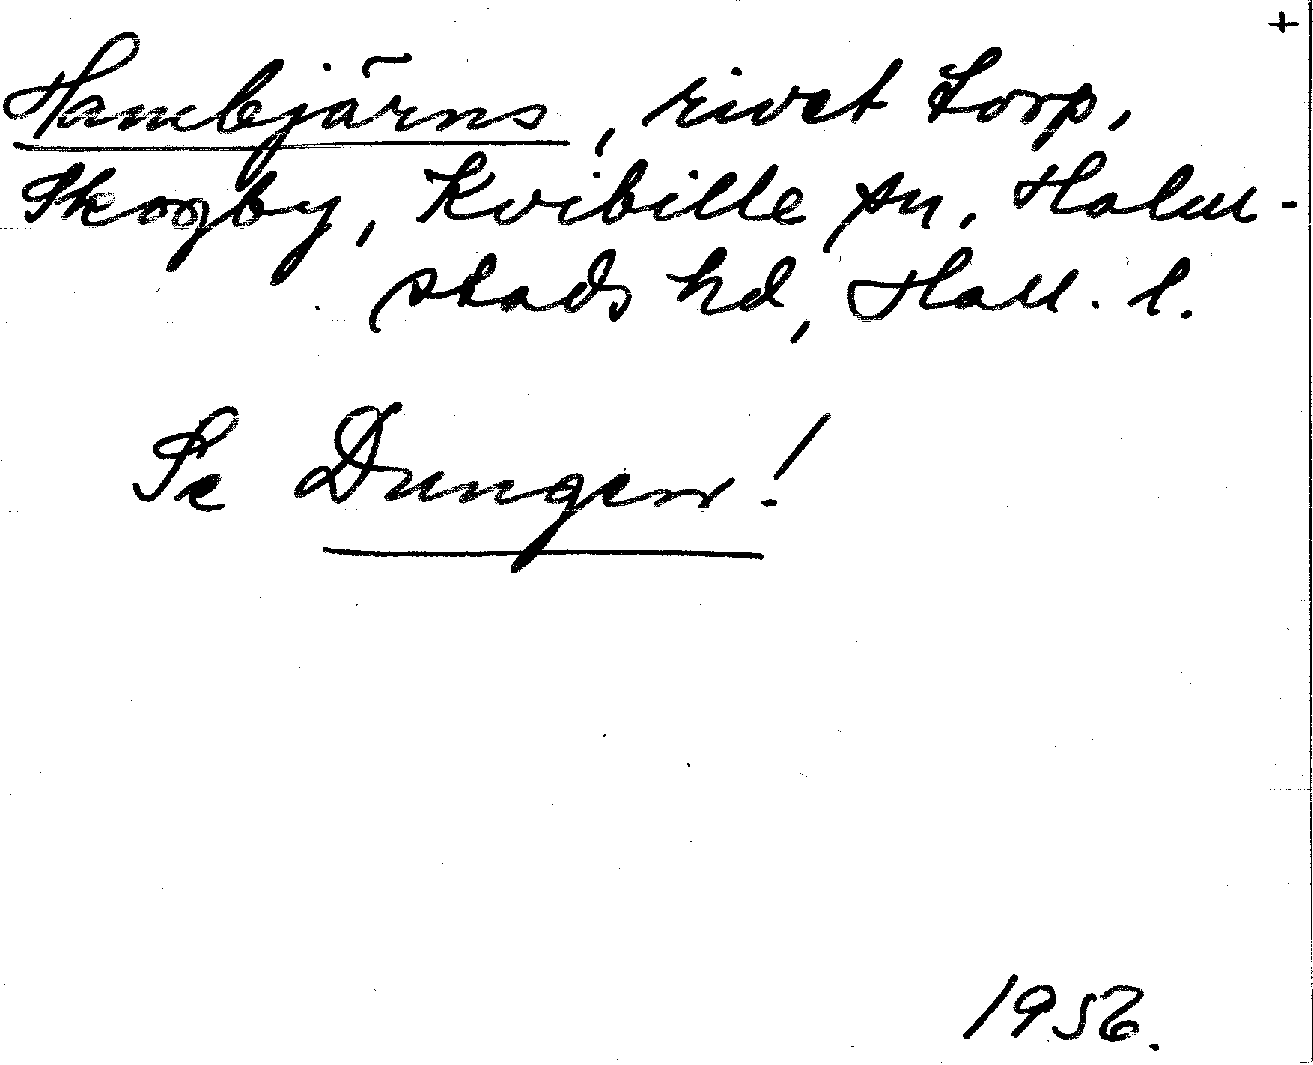 +
Hambjärns, rivet torp,
Skogby, Kvibille sn, Halm-
stads hd, Hall. l.
Se Dungen!
1956.